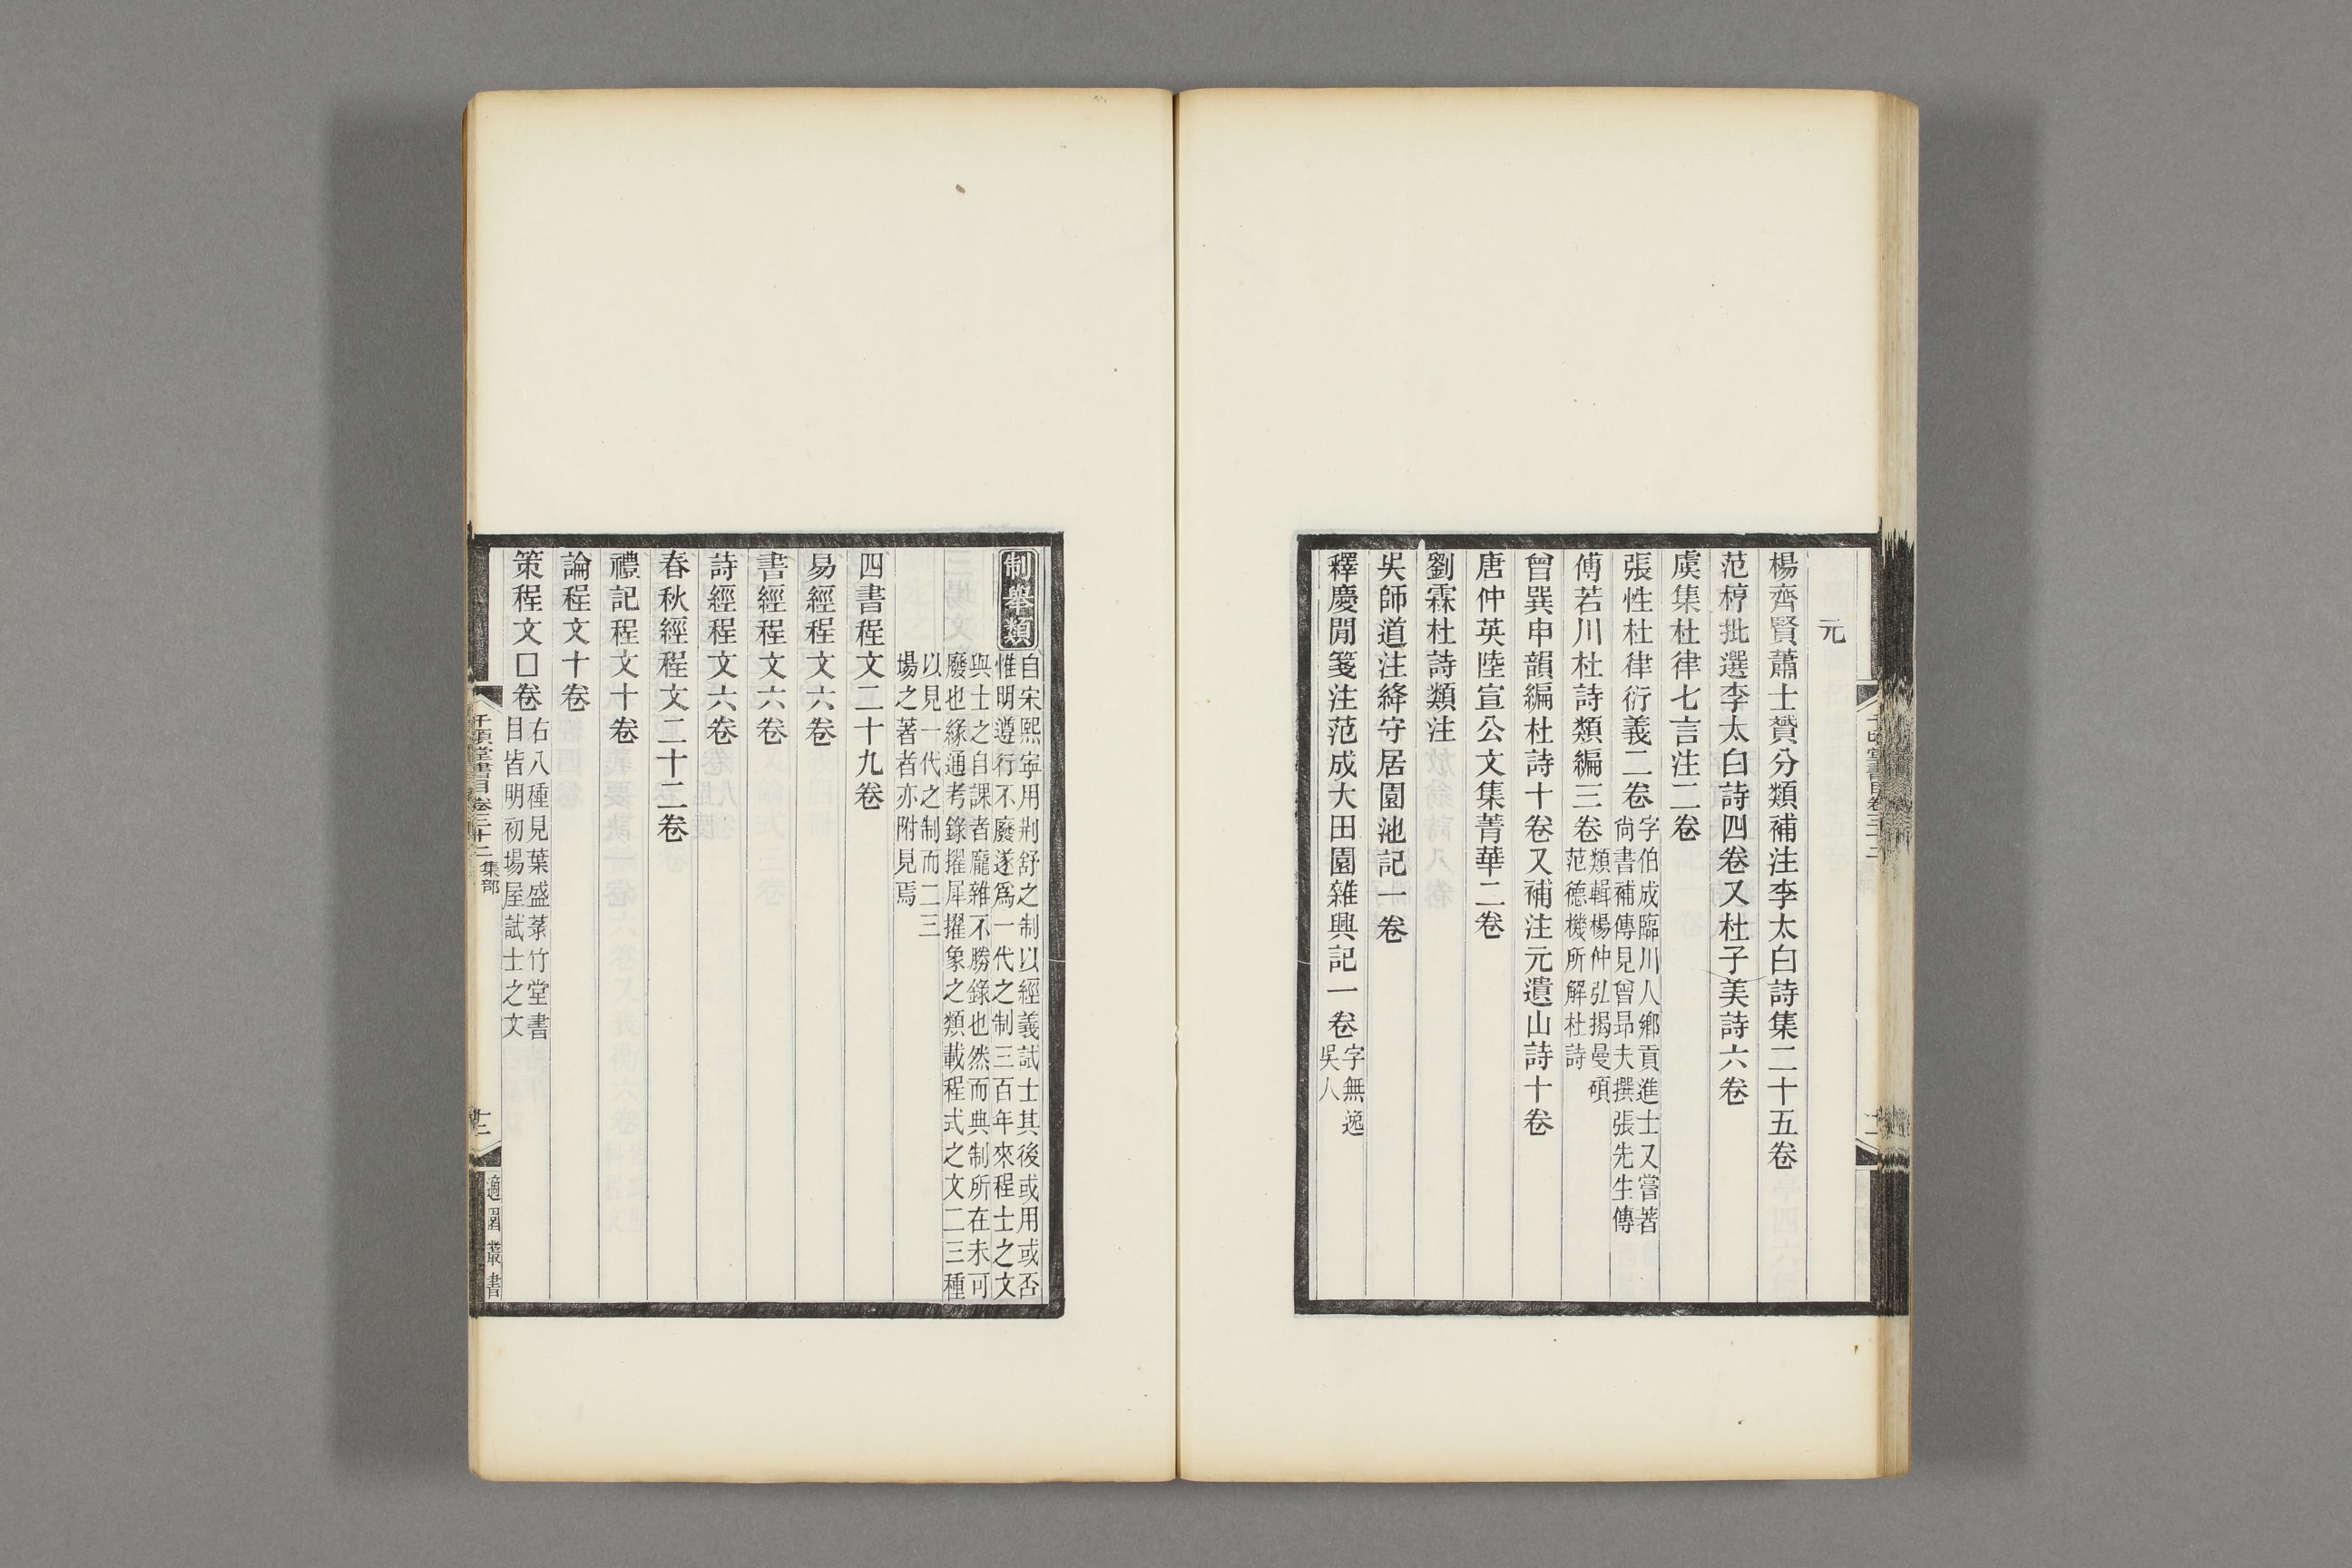 元
楊齊賢蕭士贇分類補注李太白詩集二十五卷
范梈批選李太白詩四卷又杜子美詩六卷
虞集杜律七言注二卷
張性杜律衍義二卷字伯成臨川人鄉貢進士又嘗著
尚書補傳見曾昂夫撰張先生傳
傅若川杜詩類編三卷類輯楊仲弘揭曼碩
范德機所解杜詩
曾巽申韻編杜詩十卷又補注元遺山詩十卷
唐仲英陸宣公文集菁華二卷
劉霖杜詩類注
吳師道注絳守居園池記一卷
釋慶閒箋注范成大田園雜興記一卷字無逸
吳人
制舉類
自宋熙寧用荆舒之制以經義試士其後或用或否
惟明遵行不廢遂爲一代之制三百年來程士之文
與士之自課者龐雜不勝錄也然而典制所在未可
廢也緣通考錄擢犀擢象之類載程式之文二三種
以見一代之制而二三
場之著者亦附見焉
四書程文二十九卷
易經程文六卷
書經程文六卷
詩經程文六卷
春秋經程文二十二卷
禮記程文十卷
論程文十卷
策程文□卷右八種見葉盛菉竹堂書
目皆明初場屋試士之文
千頃堂書目卷三十二 集部
十二
適園叢書